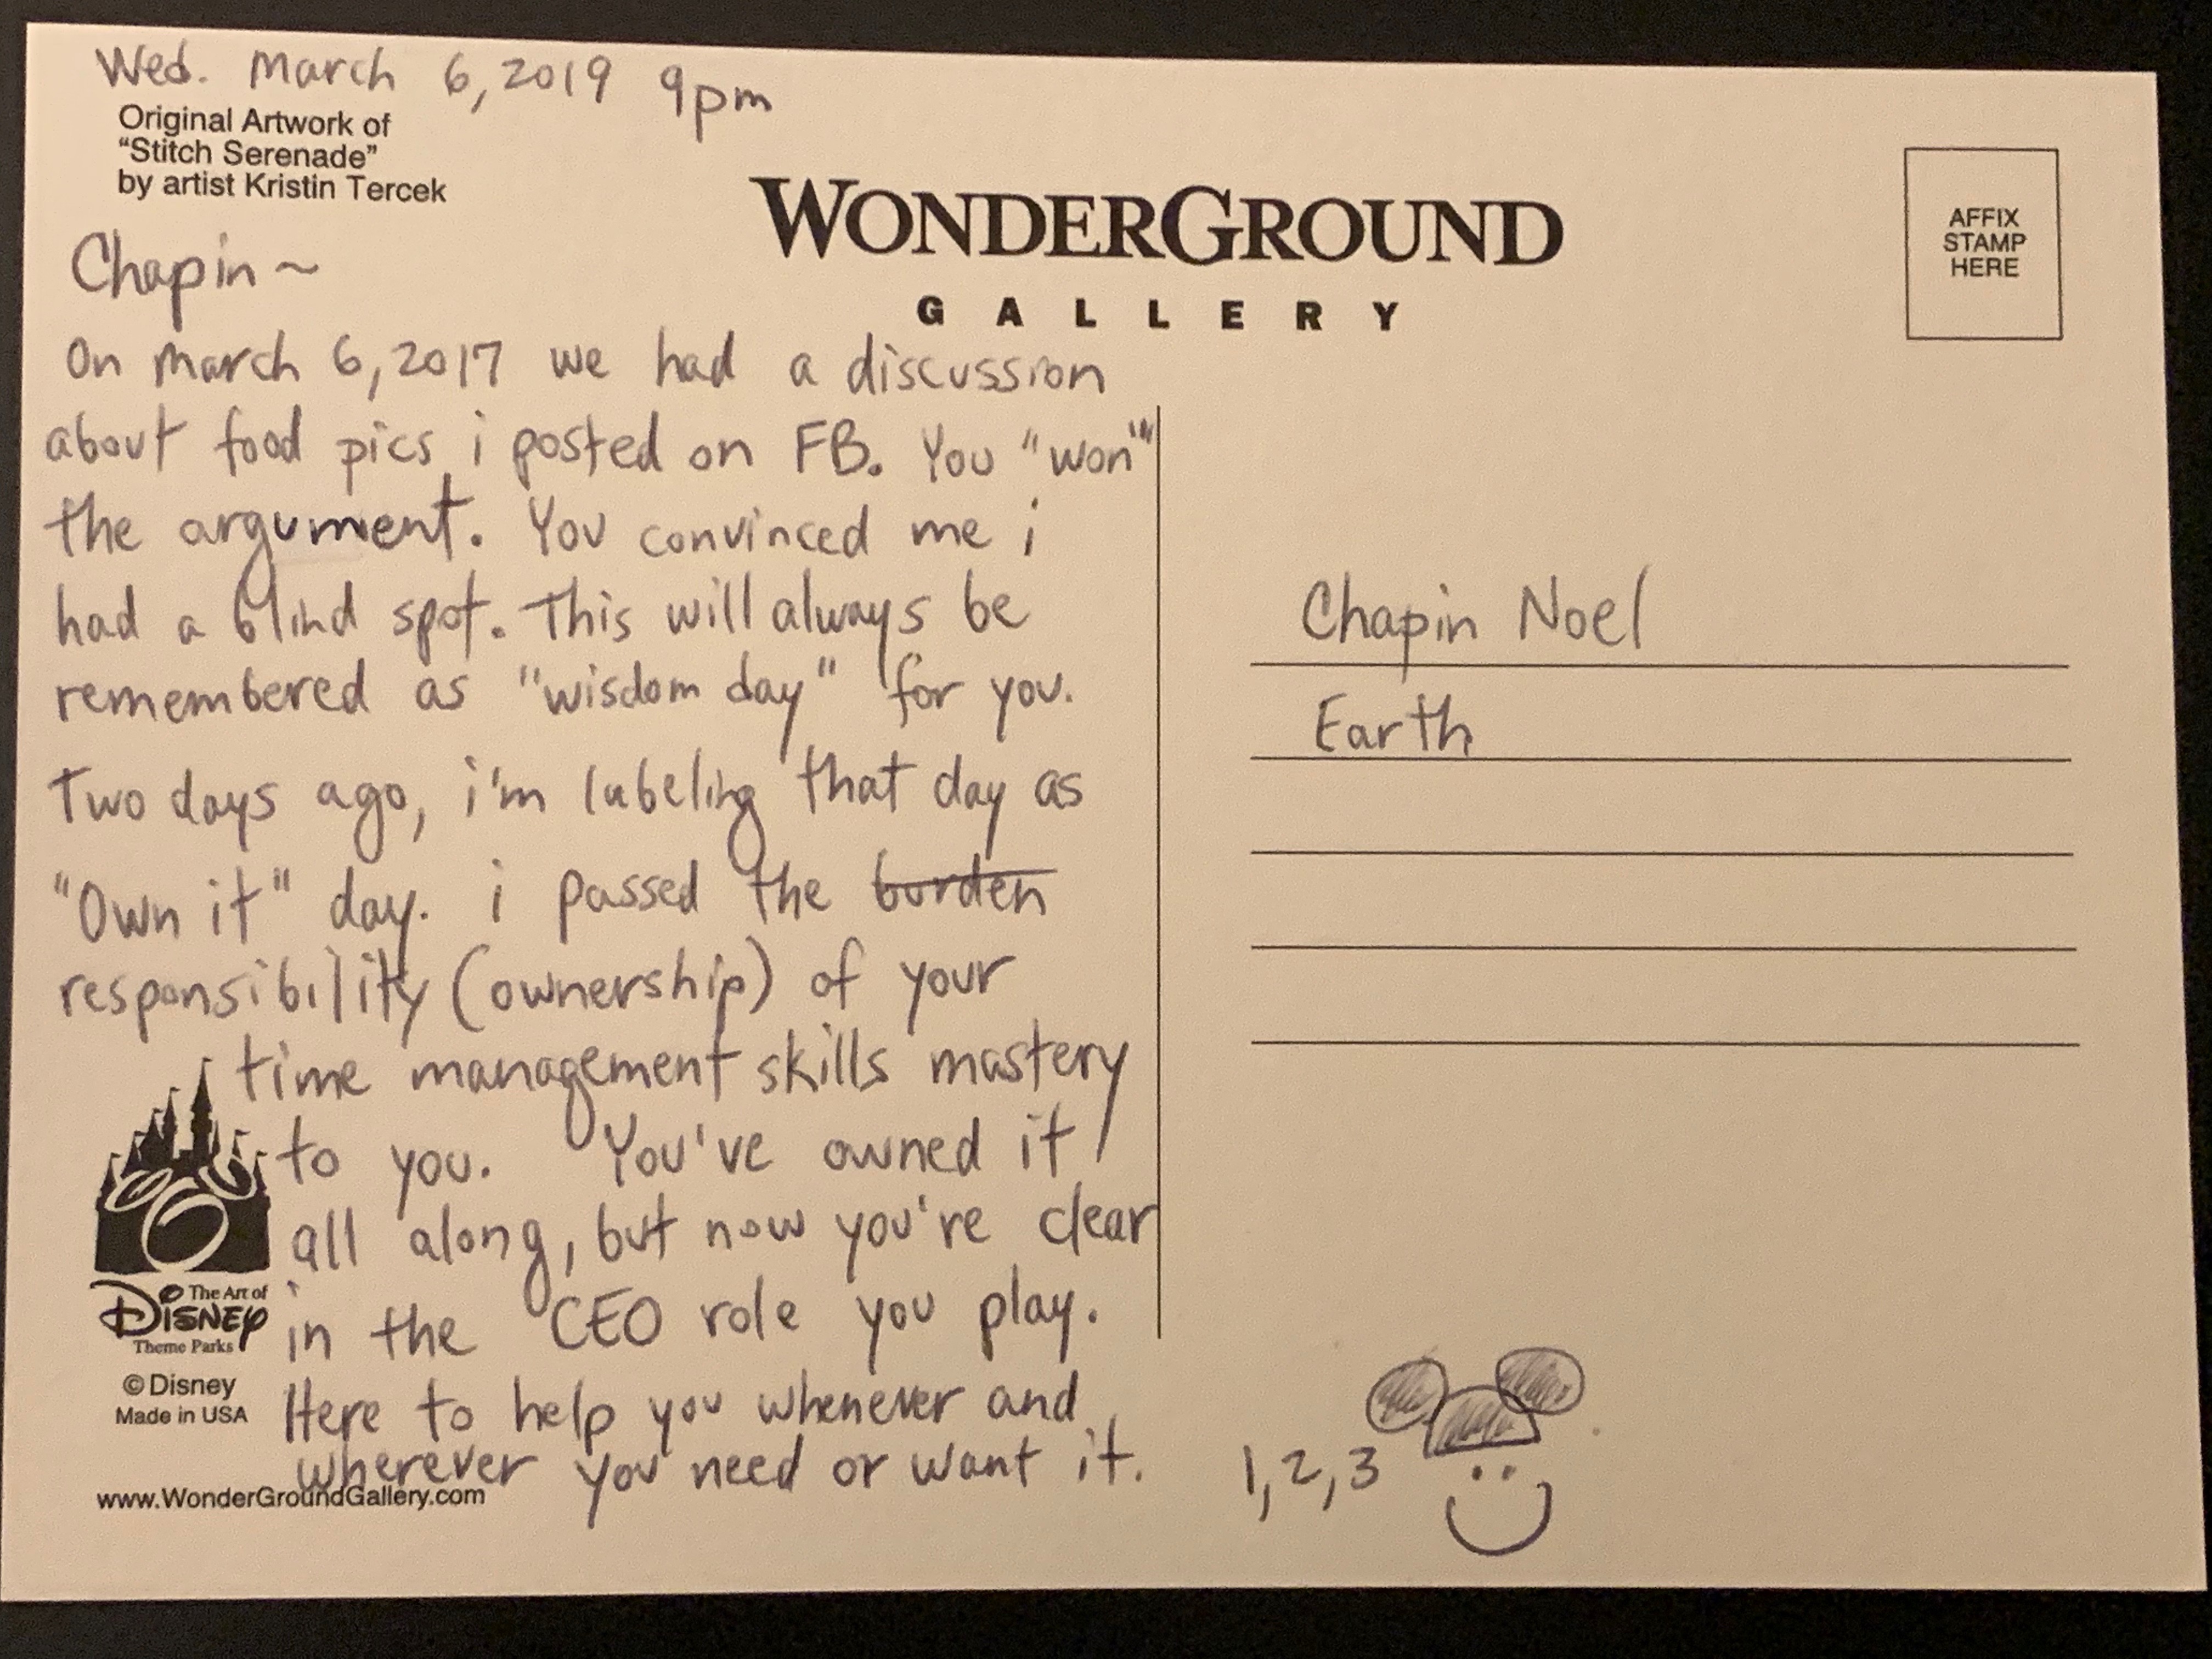 Wed. March 6, 2019 9pm
Original Artwork of
"Stitch Serenade"
by artist Kristin Tercek
WONDERGROUND
GALLERY
AFFIX
STAMP
HERE
Chapin ~
On March 6, 2017 we had a discussion
about food pics i posted on FB. You "won"
the argument. You convinced me i
had a blind spot. This will always be
remembered as "wisdom day" for you.
Two days ago, i'm labeling that day as
"Own it" day. i passed the burden
responsibility (ownership) of your
time management skills mastery
to you. You've owned it
all along, but now you're clear
in the CEO role you play.
Here to help you whenever and
wherever you need or want it.
The Art of
DISNEY
Theme Parks
©Disney
Made in USA
www.WonderGroundGallery.com
Chapin Noel
Earth
1, 2, 3